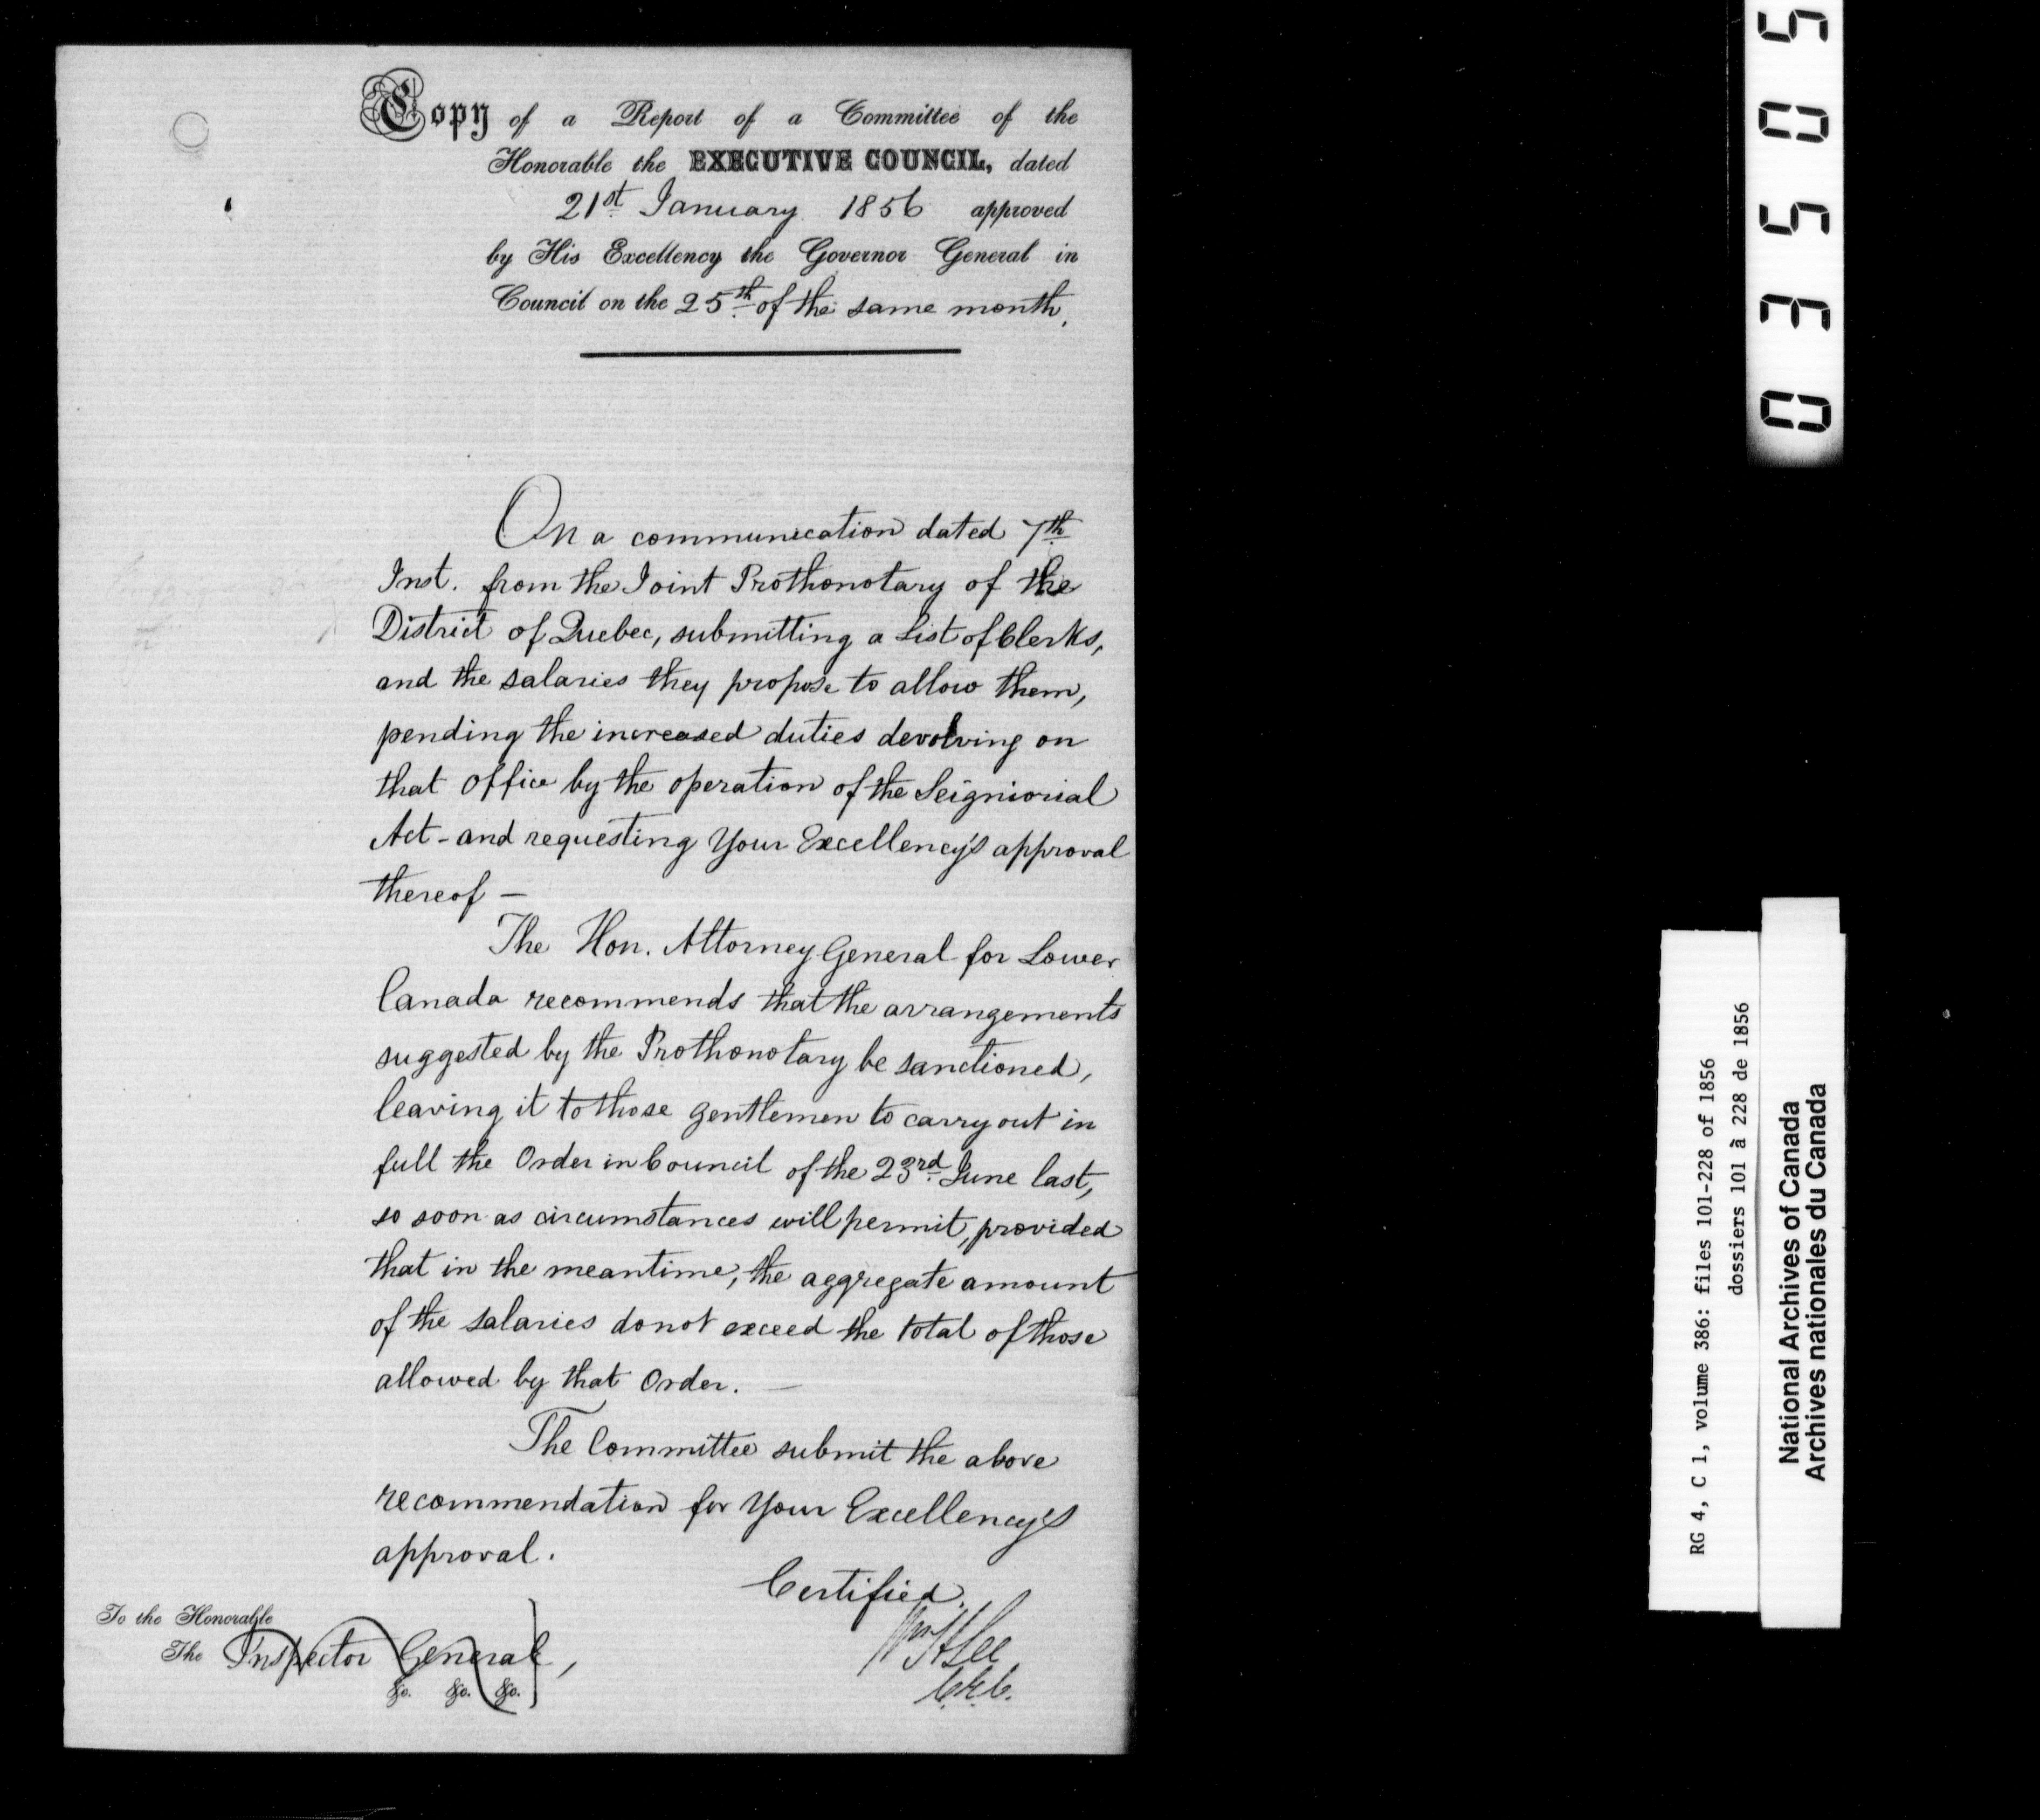 Copy of a Report of a Committee of the
Honorable the EXECUTIVE COUNCIL, dated
21st January 1856 approved
by His Excellency the Governor General in
Council on the 25th of the same month.
On a communication dated 7th
Inst. from the Joint Prothonotary of the
District of Quebec, submitting a List of Clerks,
and the salaries they propose to allow them,
pending the increased duties devolving on
that Office by the operation of the Seigniorial
Act - and requesting Your Excellency's approval
thereof —
The Hon. Attorney General for Lower
Canada recommends that the arrangements
suggested by the Prothonotary be sanctioned,
leaving it to those gentlemen to carry out in
full the Order in Council of the 23rd June last,
so soon as circumstances will permit, provided
that in the meantime, the aggregate amount
of the salaries do not exceed the total of those
allowed by that Order. —
The Committee submit the above
recommendation for Your Excellency's
approval.
Certified.
WmHLee
C.E.C.
To the Honorable
The Inspector General,
&c. &c. &c.
03505
RG 4, C 1, volume 386: files 101-228 of 1856
dossiers 101 à 228 de 1856
National Archives of Canada
Archives nationales du Canada